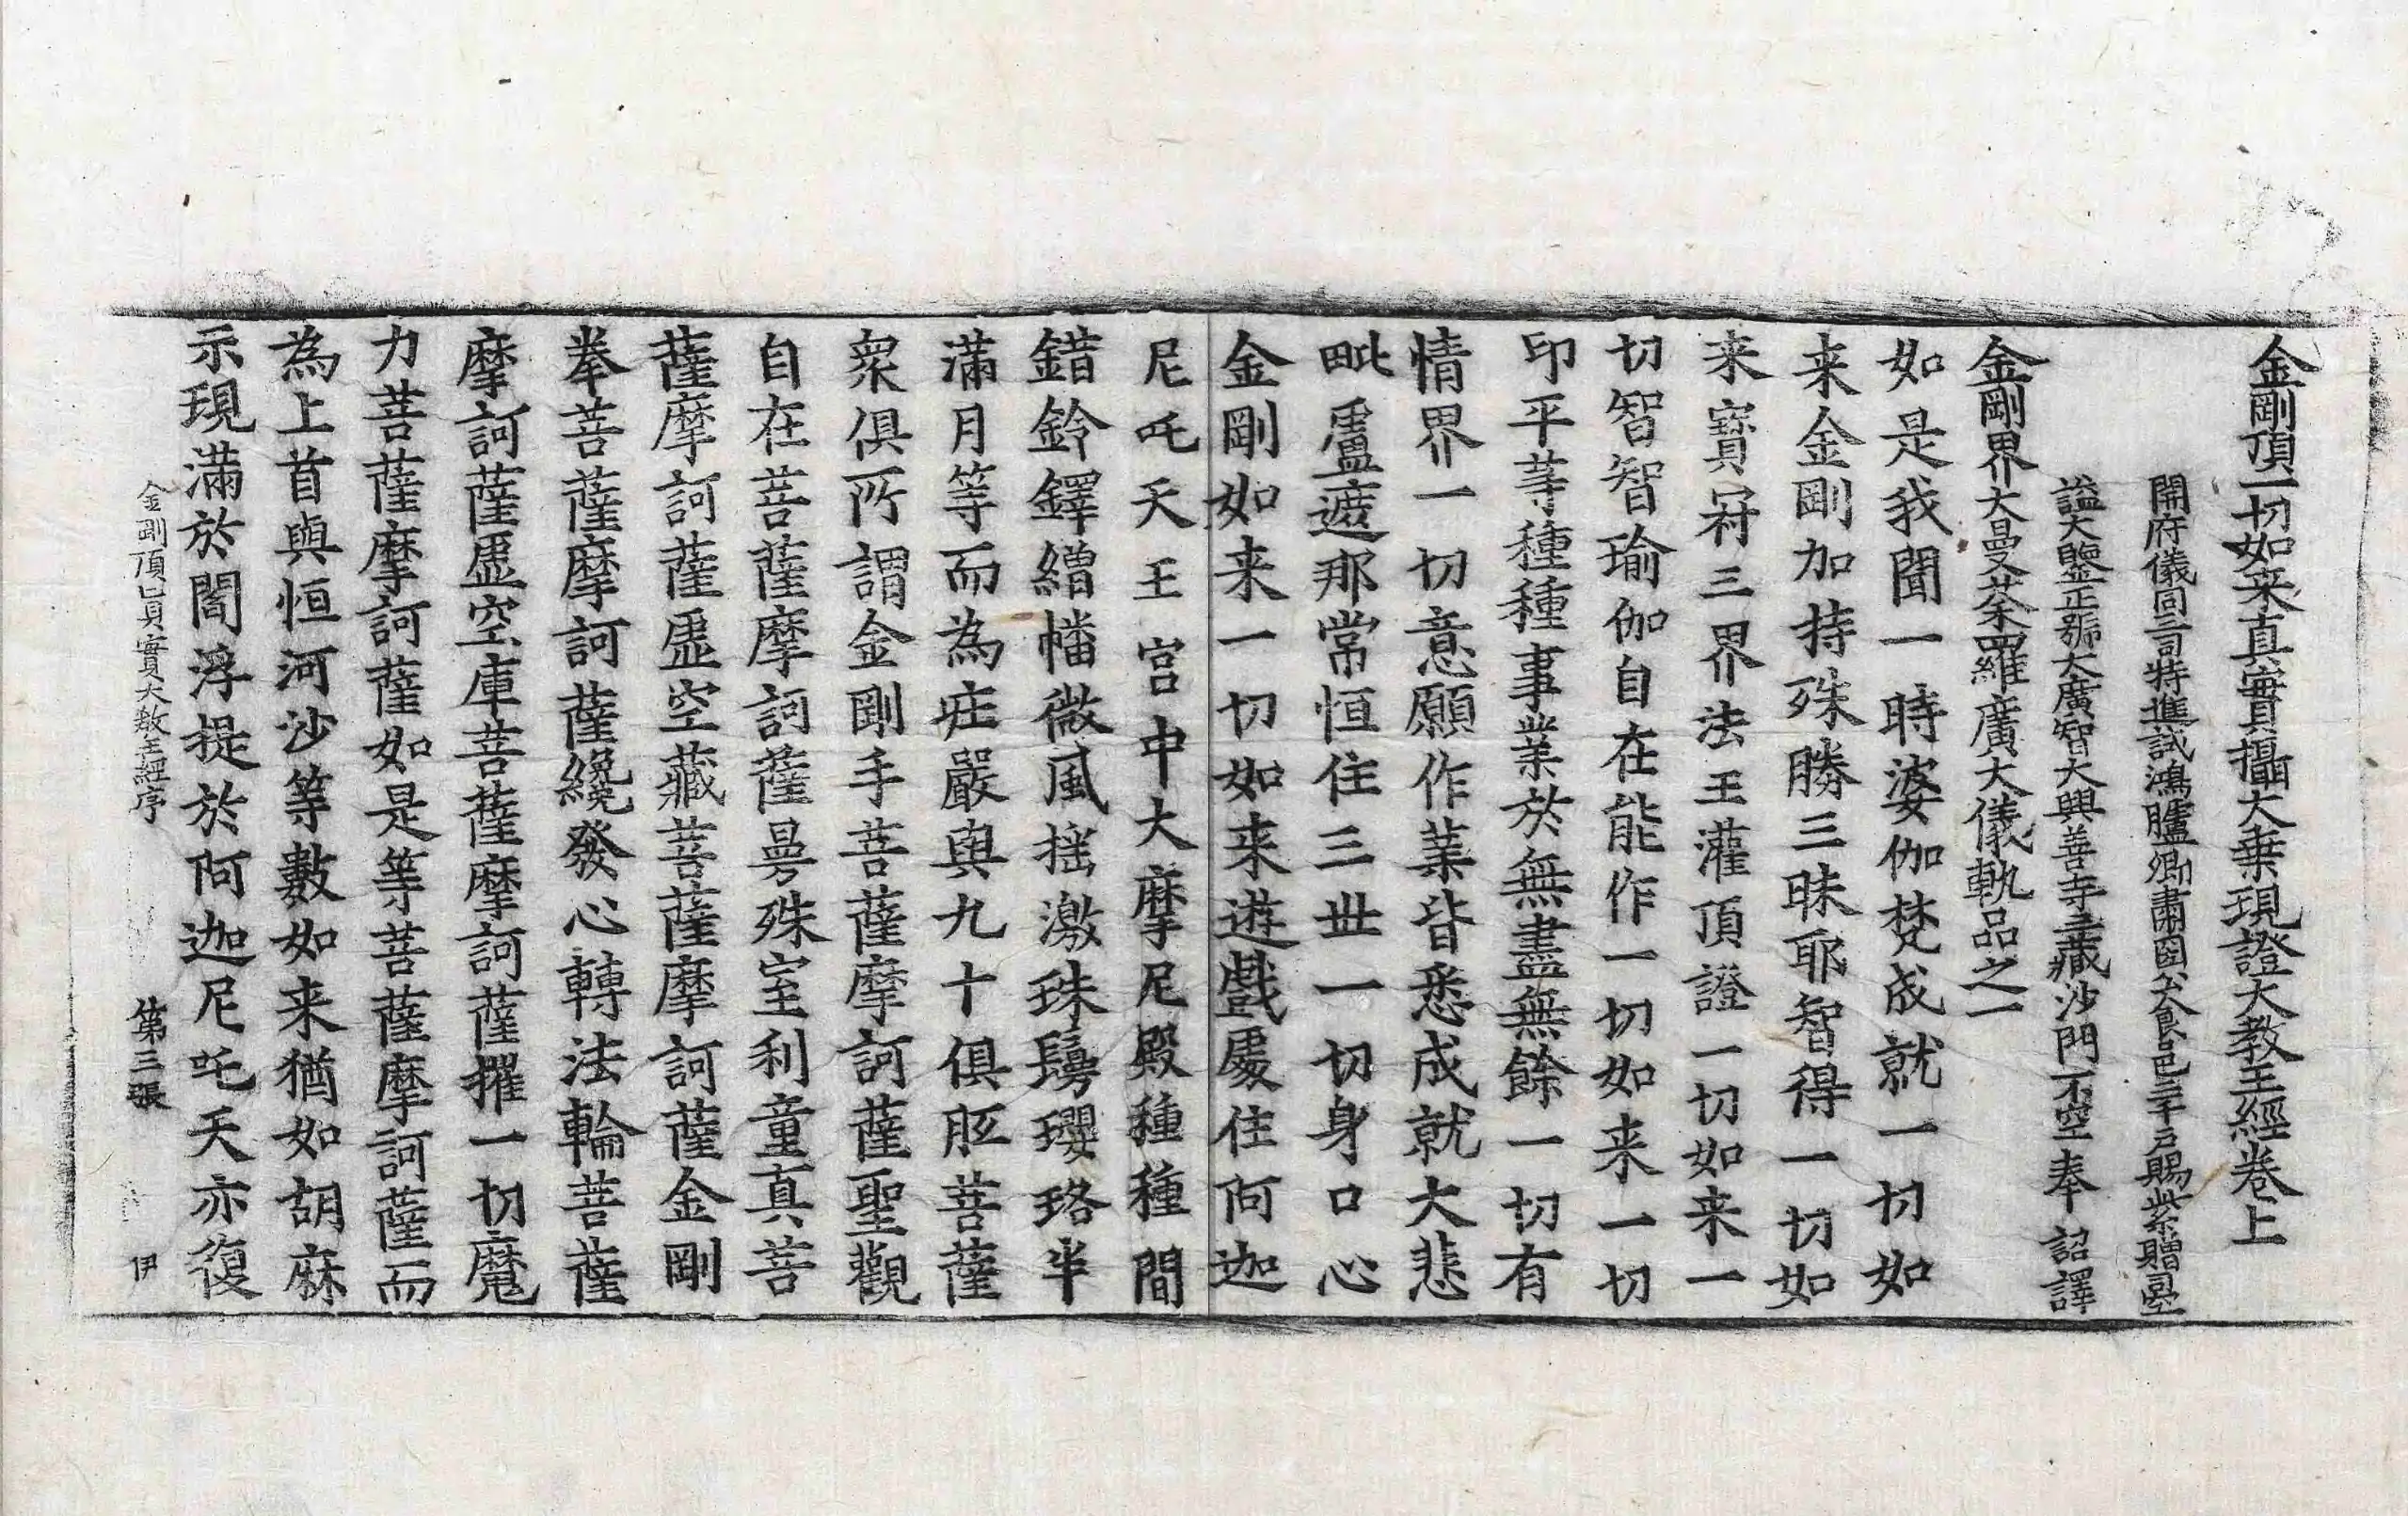 金剛頂一切如来真實攝大乗現證大教王經卷上
開府儀同三司特進試鴻臚卿肅國公食邑三千戶賜紫贈司空
謚大鑒正號大廣智大興善寺三藏沙門不空奉　詔譯
金剛界大曼荼羅廣大儀軌品之一
如是我聞一時婆伽梵成就一切如
来金剛加持殊勝三昧耶智得一切如
来寶冠三界法王灌頂證一切如来一
切智智瑜伽自在能作一切如来一切
印平等種種事業於無盡無餘一切有
情界一切意願作業皆悉成就大悲
毗盧遮那常恒住三世一切身口心
金剛如来一切如来遊戲處住阿迦
尼吒天王宮中大摩尼殿種種間
錯鈴鐸繒幡微風摇激珠鬘瓔珞半
滿月等而為莊嚴與九十俱胝菩薩
衆俱所謂金剛手菩薩摩訶薩聖觀
自在菩薩摩訶薩曼殊室利童真菩
薩摩訶薩虛空藏菩薩摩訶薩金剛
拳菩薩摩訶薩纔發心轉法輪菩薩
摩訶薩虛空庫菩薩摩訶薩摧一切魔
力菩薩摩訶薩如是等菩薩摩訶薩而
為上首與恒河沙等數如来猶如胡麻
示現滿於閻浮提於阿迦尼吒天亦復
金剛頂真實大教王經序　第三張　伊